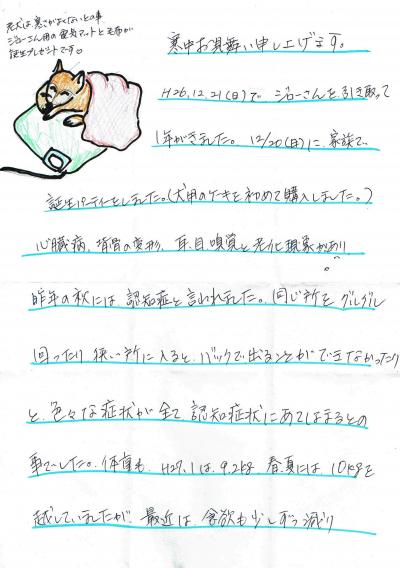 老犬は、寒さがよくないとの事
ジローさん用の電気マットと毛布が
誕生プレゼントです。
寒中お見舞い申し上げます。
H26.12.21(日)で ジローさんを引き取って
1年がきました。12/20(日)に、家族で、
誕生パーティーをしました。(犬用のケーキを初めて購入しました。)
心臓病、背骨の変形、耳、目、嗅覚と老化現象があり
昨年の秋には、認知症と言われました。同じ所を グルグル
回ったり 狭い所に入ると、バックで出ることができなかったり
と、色々な症状が全て 認知症状にあてはまるとの
事でした。体重も、H27.1は、9.2kg 春夏には 10kgを
越していましたが、最近は、食欲も少しずつ減り